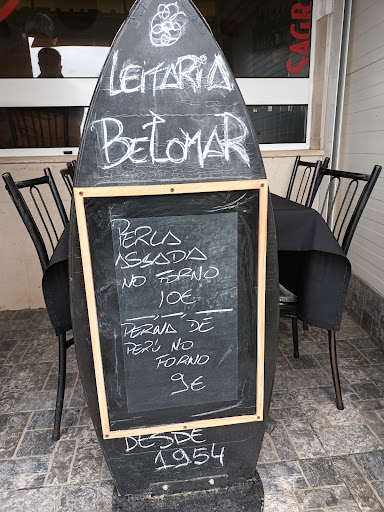 LEITARIA
BELOMAR
PERCA
ASSADA
NO FORNO
10€
PERNA DE
PERÚ NO
FORNO
9€
DESDE
1954
SAGR